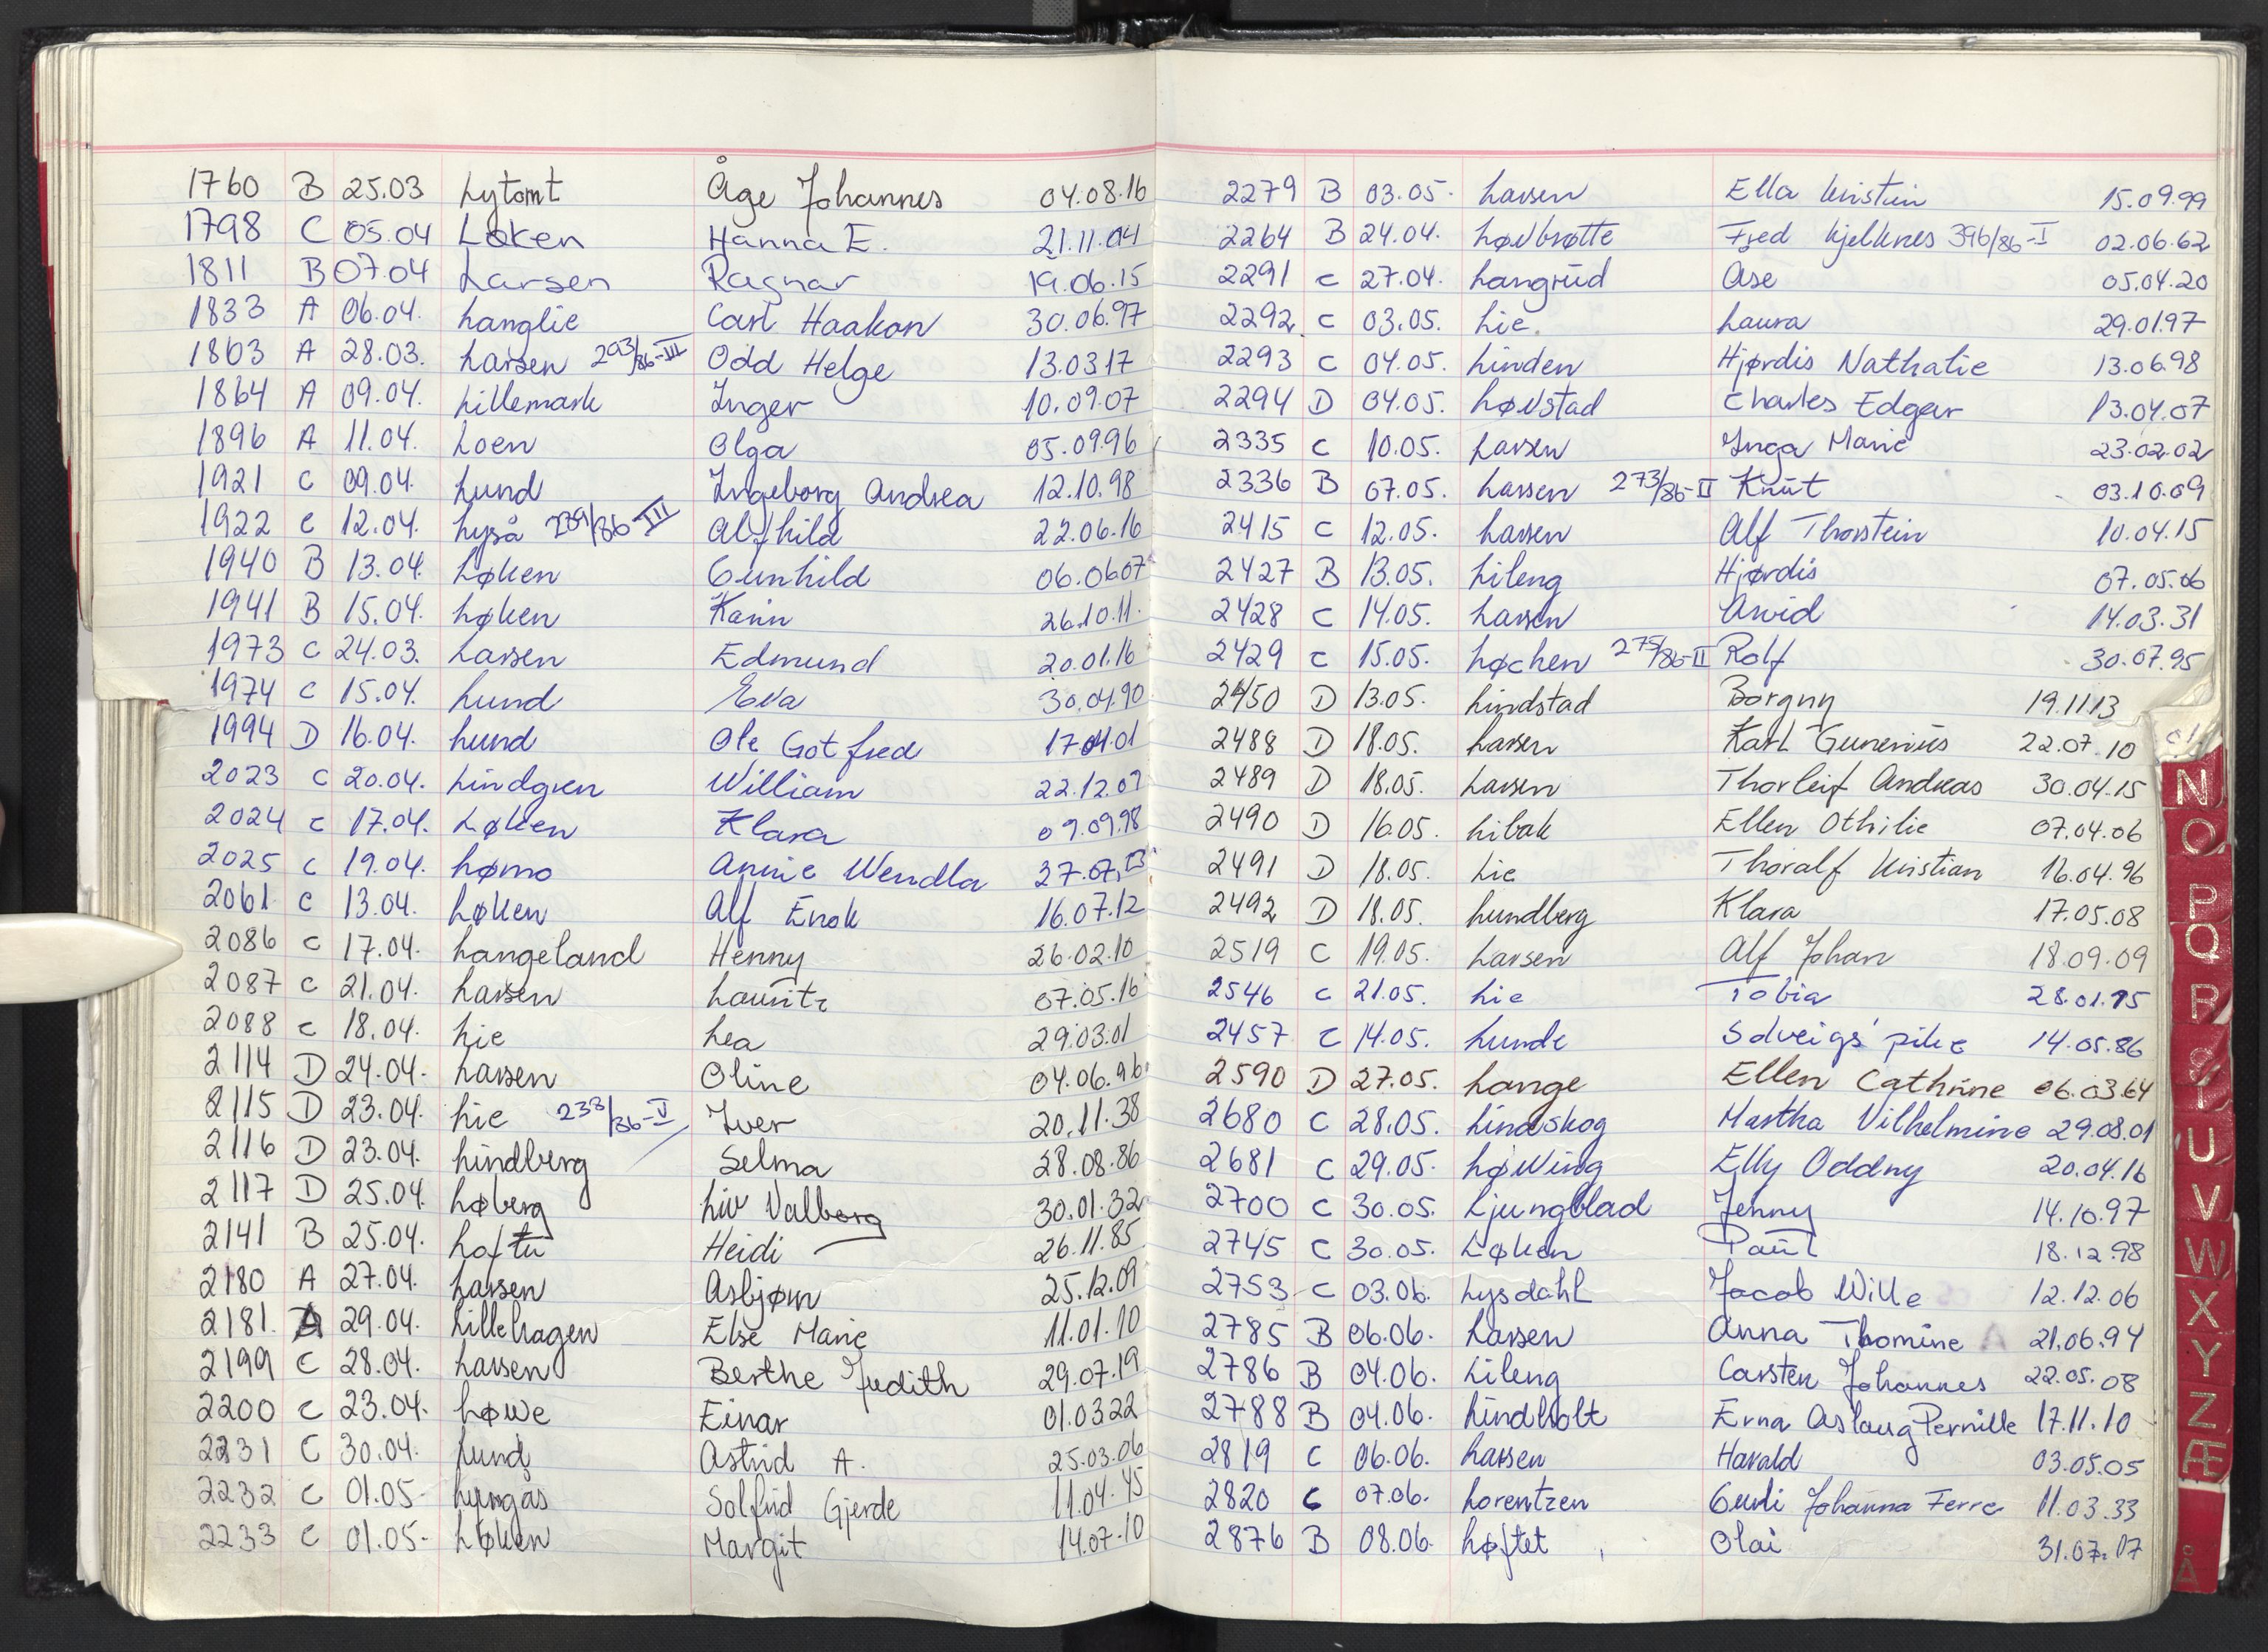 1760 B 25.03 Lytomt Åge Johannes 04.08.16
1798 C 05.04 Løken Hanna E. 21.11.04
1811 B 07.04 Larsen Ragnar 19.06.15
1833 A 06.04. Langlie Carl Haakon 30.06.97
1863 A 28.03. Larsen 293/86-III Odd Helge 13.03 17
1864 A 09.04. Lillemark Inger 10.09.07
1896 A 11.04. Loen Olga 05.09.96
1921 C 09.04. Lund Ingeborg Andrea 12.10.98
1922 C 12.04. Lyså /86-III Alfhild 22.06.16
1940 B 13.04. Løken Gunhild 06.06.07
1941 B 15.04. Løken Karin 26.10.11.
1973 C 24.03. Larsen Edmund 20.01.16
1974 C 15.04. Lund Eva 30.04.90
1994 D 16.04. Lund Ole Gotfred 17.01
2023 C 20.04. Lindgren William 22.12.07
2024 C 17.04. Løken Klara 09.09.98
2025 C 19.04. Lømo Annie Wendla 27.07.
2061 C 13.04. Løken Alf Enok 16.07.12
2086 C 17.04. Langeland Henny 26.02.10
2087 C 21.04. Larsen Lauritz 07.05.16
2088 C 18.04. Lie Lea 29.03.01
2114 D 24.04. Larsen Oline 04.06.96
2115 D 23.04. Lie 233/86-V Iver 20.11.38
2116 D 23.04. Lindberg Selma 28.08.86
2117 D 25.04. Løberg Liv Valborg 30.01.32
2141 B 25.04. Loftu Heidi 26.11.85
2180 A 27.04. Larsen Asbjørn 25.12.09
2181. A 29.04. Lillehagen Else Marie 11.01.10
2199 C 28.04. Larsen Berthe Judith 29.07.19
2200 C 23.04. Løwe Einar 01.03 22
2231 C 30.04. Lund Astrid A. 25.03.06
2232 C 01.05- Lyngås Solfrid Gjerde 11.04.45
2233 C 01.05- Løken Margit 14.07.10
2279 B 03.05. Larsen Ella Kristin 15.09.99
2264 B 24.04. Løvbrøtte Fred Kjelknes 396/86-I 02.06.62
2291 C 27.04. Langrud Åse 05.04.20
2292. C 03.05. Lie. Laura 29.01.97
2293 C 04.05. Linden Hjørdis Nathalie 13.06.98
2294 D 04.05. Løvstad Charles Edgar 13.04.07
2335 C 10.05. Larsen Inga Marie 23.02.02
2336 B 07.05. Larsen 273/86-II Knut 03.10.09
2415 C 12.05. Larsen Alf Thorstein 10.04.15
2427 B 13.05. Lileng Hjørdis 07.05.06
2428 C 14.05. Larsen Arvid 14.03.31
2429 C 15.05. Løchen 275/86-II Rolf 30.07.95
2450 D 13.05. Lindstad Borgny 19.11.13
2488 D 18.05. Larsen Karl Gunerius 22.07.10
2489 D 18.05. Larsen Thorleif Andreas 30.04.15
2490 D 16.05. Libak Ellen Othilie 07.04.06
2491 D 18.05. Lie Thoralf Kristian 16.04.96
2492 D 18.05. Lundberg Klara 17.05.08
2519 C 19.05. Larsen Alf Johan 18.09.09
2546 C 21.05. Lie Tobia 28.01.
2457 C 14.05. Lunde Solveigs' pike 14.05.86
2590 D 27.05. Lange Ellen Cathrine 06.03.64
2680 C 28.05. Lindskog Martha Vilhelmine 29.08.01
2681 C 29.05. Løvving Elly Oddny 20.04.16
2700 C 30.05. Ljungblad Jenny 14.10.97
2745 C 30.05. Løken Paul 18.12.98
2753 C 03.06. Lysdahl Jacob Wille 12.12.06
2785 B 06.06. Larsen Anna Thomine 21.06.94
2786 B 04.06. Lileng Carsten Johannes 22.05.08
2788 B 04.06. Lindholt Erna Aslaug Pernille 17.11.10
2819 C 06.06. Larsen Harald 03.05.05
2820 C 07.06. Lorentzen Guri Johanna Ferre 11.03.33
2876 B 08.06. Løftet Olai 31.07.07
N
O
P
Q
R
S
T
U
V
W
X
Y
Z
Æ
Å